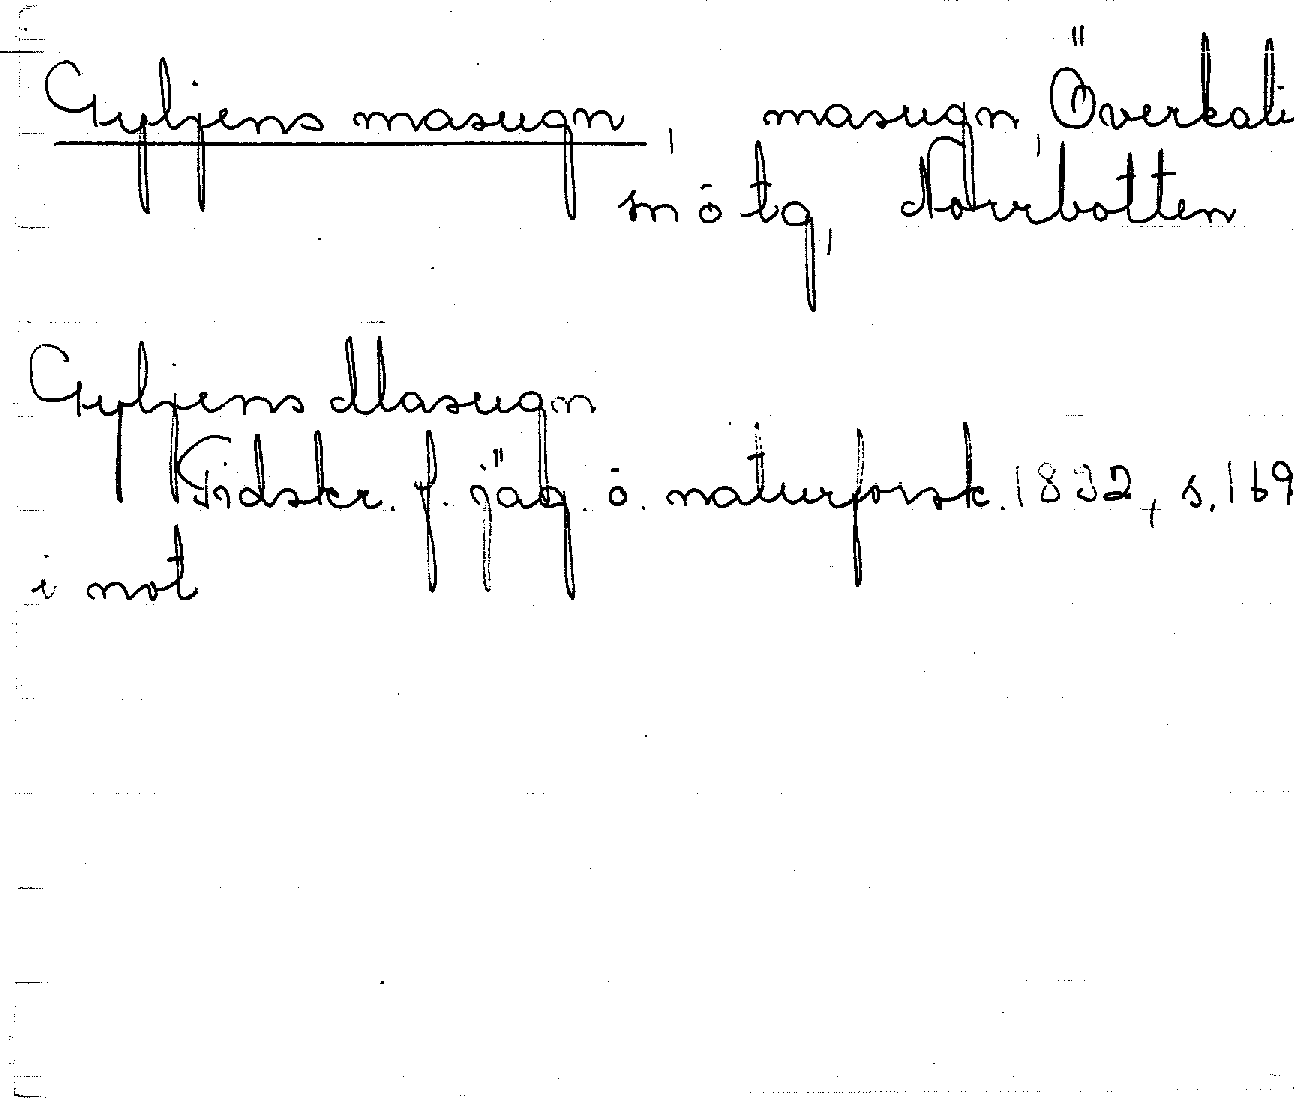 Gyljens masugn, masugn, Överkali
sm ö tg, Norrbotten
Gyljens Masugn
Tidskr. f. jäg. o. naturforsk. 1832, s. 169
i not